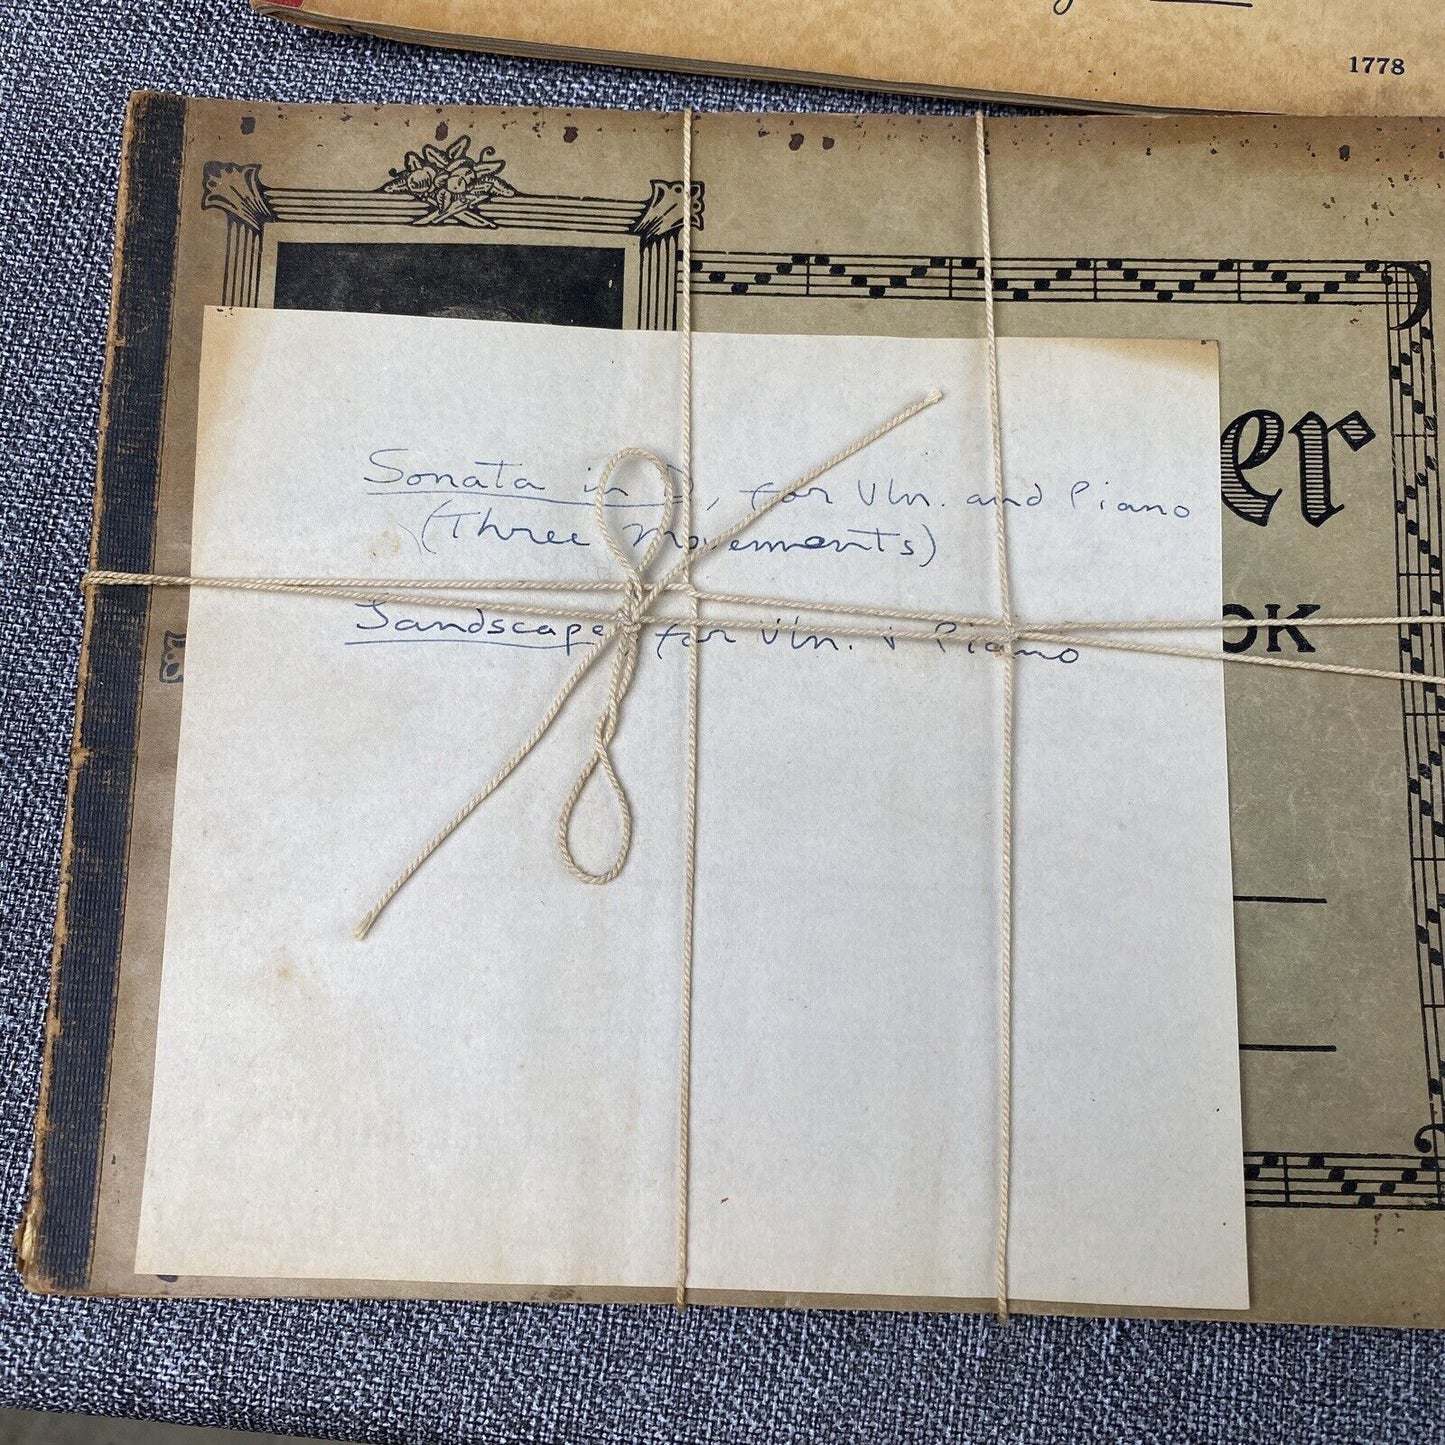 1778
Sonata in D, for Vln. and Piano
(Three Movements)
Landscape, for Vln. & Piano
er
OK